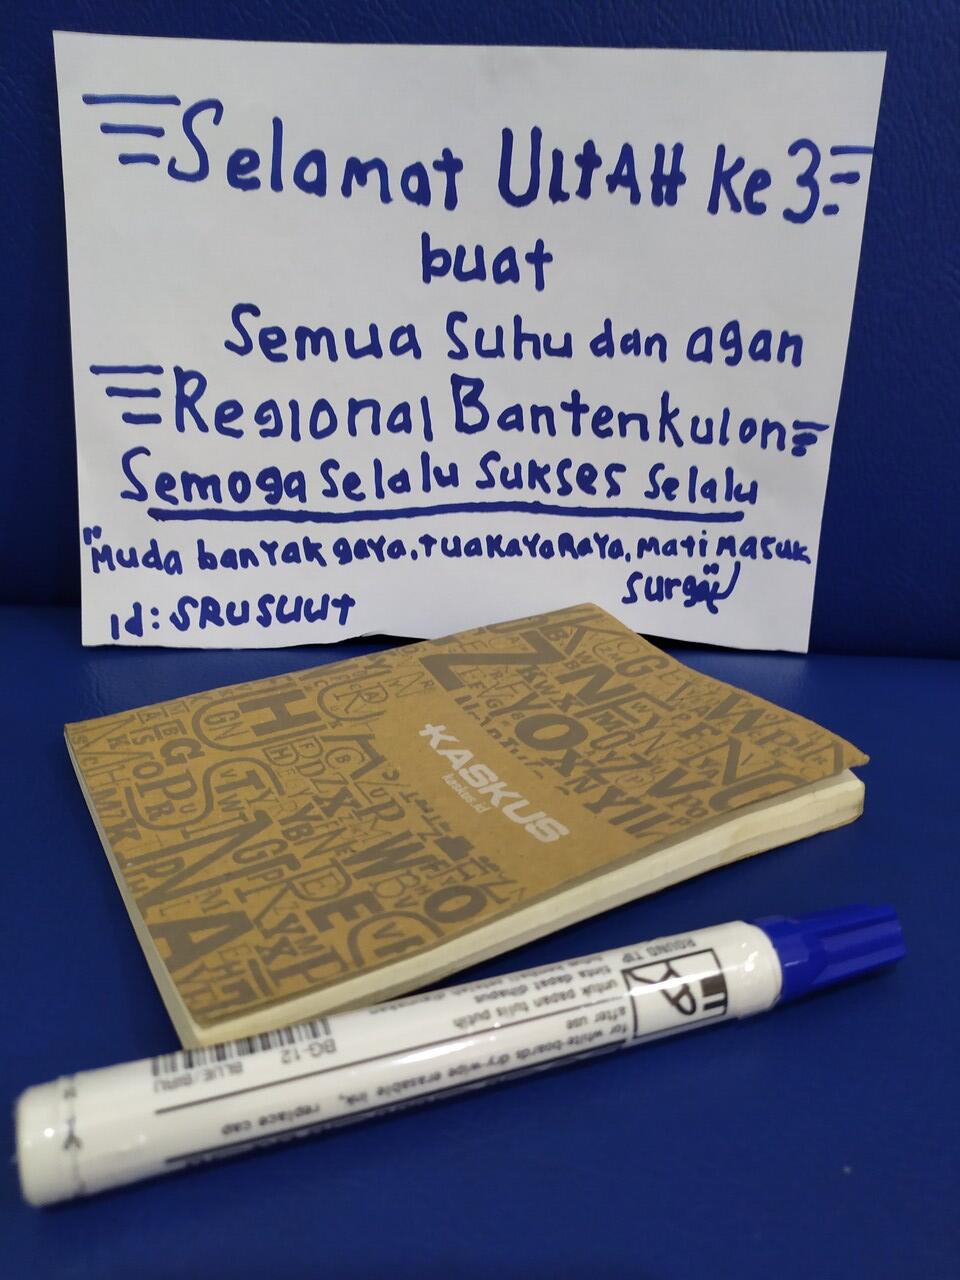 Selamat ULtAH ke 3
buat
Semua Suhu dan agan
Regional Bantenkulon
Semoga Selalu Sukses Selalu
"Muda banyak gaya, tua kaya Raya, mati masuk
surga"
id: SRUSUUt
KASKUS
kaskus.id
ROUND TIP
tinta dapat dihapus
untuk papan tulis putih
after use
for white-boards dry-wipe erasable ink,
replace cap
BG-12
BLUE/BIRU